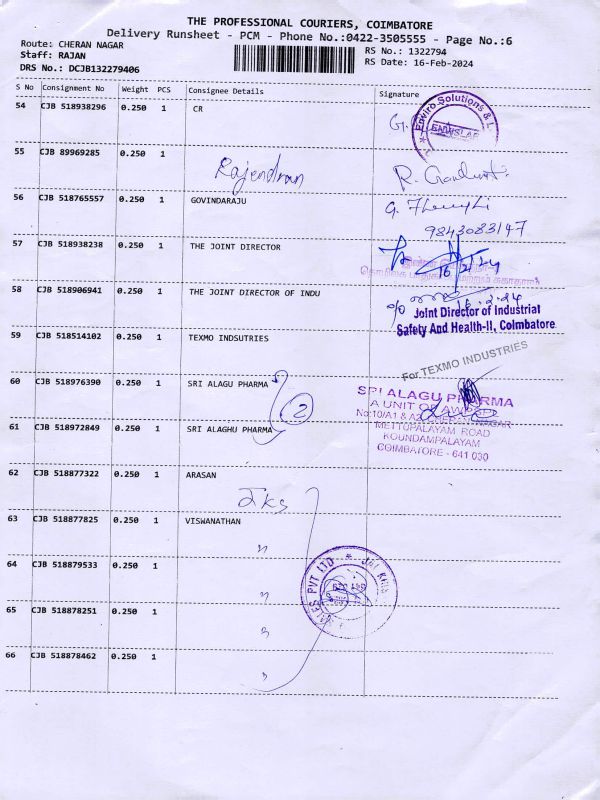 THE PROFESSIONAL COURIERS, COIMBATORE
Delivery Runsheet - PCM - Phone No.:0422-3505555 - Page No.:6
Route: CHERAN NAGAR
RS No.: 1322794
Staff: RAJAN
RS Date: 16-Feb-2024
DRS No.: DCJB132279406
S No Consignment No Weight PCS Consignee Details Signature
54 CJB 518938296 0.250 1 CR
Enviro Solutions & L
55 CJB 89969285 0.250 1
Rajendran
56 CJB 518765557 0.250 1 GOVINDARAJU
9843083147
57 CJB 518938238 0.250 1 THE JOINT DIRECTOR
16/2/24
58 CJB 518906941 0.250 1 THE JOINT DIRECTOR OF INDU
16.2.24
Joint Director of Industrial
Safety And Health-II, Coimbatore
59 CJB 518514102 0.250 1 TEXMO INDSUTRIES
For TEXMO INDUSTRIES
60 CJB 518976390 0.250 1 SRI ALAGU PHARMA
2
SRI ALAGU PHARMA
A UNIT OF
No:10/A1 & A2, NAGAR
METTUPALAYAM ROAD
KOUNDAMPALAYAM
COIMBATORE - 641 030
61 CJB 518972849 0.250 1 SRI ALAGHU PHARMA
62 CJB 518877322 0.250 1 ARASAN
63 CJB 518877825 0.250 1 VISWANATHAN
64 CJB 518879533 0.250 1
PVT LTD
65 CJB 518878251 0.250 1
66 CJB 518878462 0.250 1